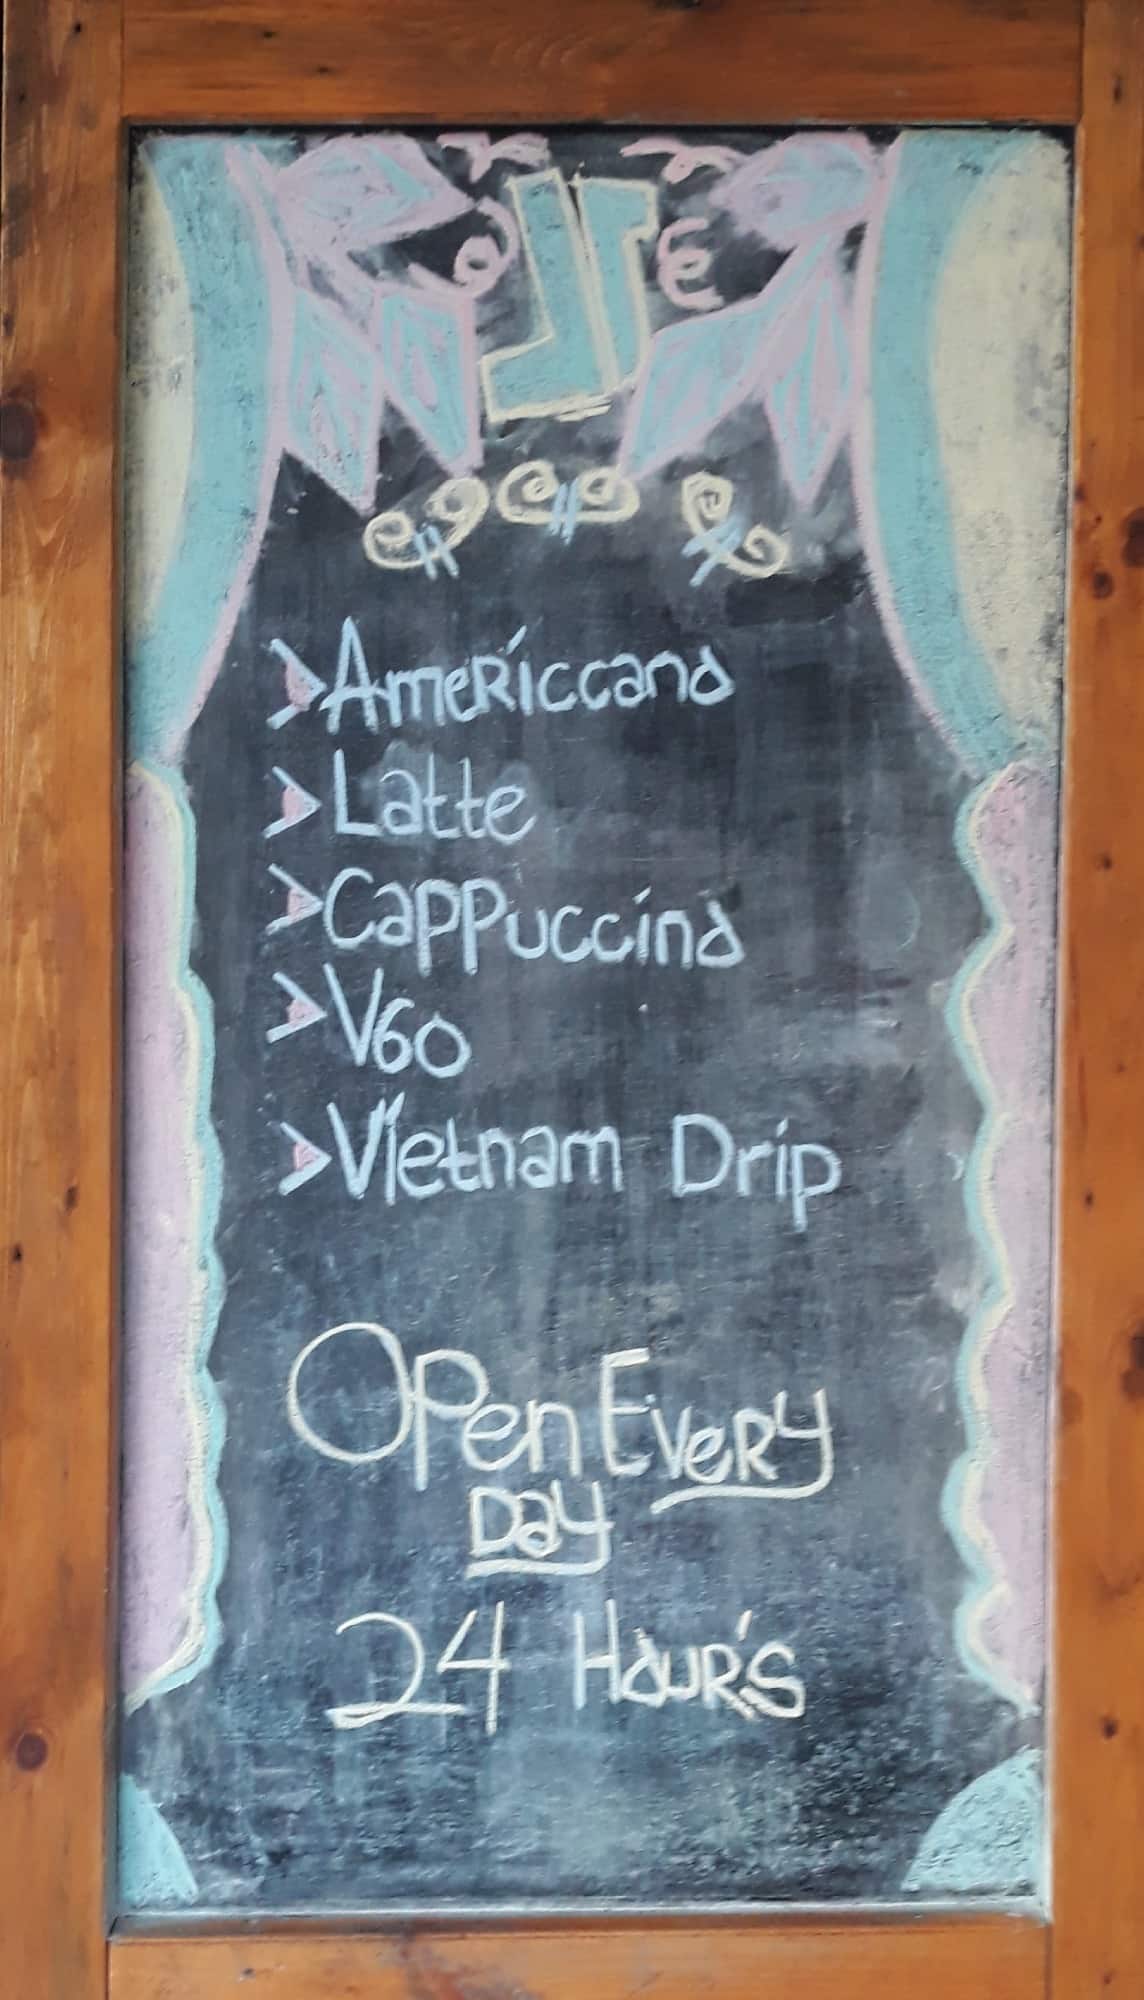 Americcano
Latte
Cappuccino
V60
Vietnam Drip
Open Every
Day
24 Hour's